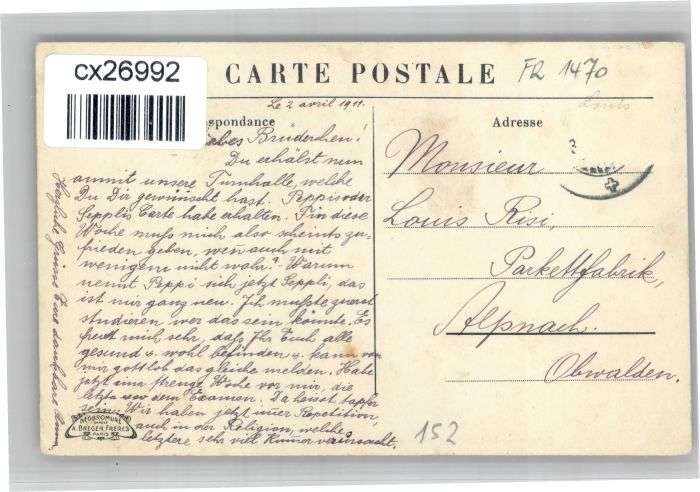 cx26992
CARTE POSTALE
FR 1470
Louis
Le 2 avril 1911.
spondance
Adresse
Liebes Brüderchen!
Du erhälst nun
ammit unsere Turnhalle, welche
Du Dir gewünscht hast. Peppis oder
Sepplis Carte habe erhalten. Für diese
Woche muss mich also scheints zu-
frieden geben, wen auch mit
wenigem nicht wahr? - Warum
nennt Peppi sich jetzt Seppli, das
ist mir ganz neu. Ich musste zuerst
studieren wer das sein könnte. Es
freut mich sehr, dass Ihr Euch alle
gesund u. wohl befinden u. kann von
mir gottlob das gleiche melden. Habe
jetzt eine strenge Woche vor mir, die
letzte vor dem Examen. Da heisst tapfer
sein. Wir haben jetzt immer Repetition,
auch in der Religion, welches
letztere sehr viel Kumer verursacht.
Herzliche Grüsse Eure dankbare
Monsieur
Louis Risi,
Parkettfabrik,
Alpnach.
Obwalden.
152
A. BREGER FRÈRES
PARIS